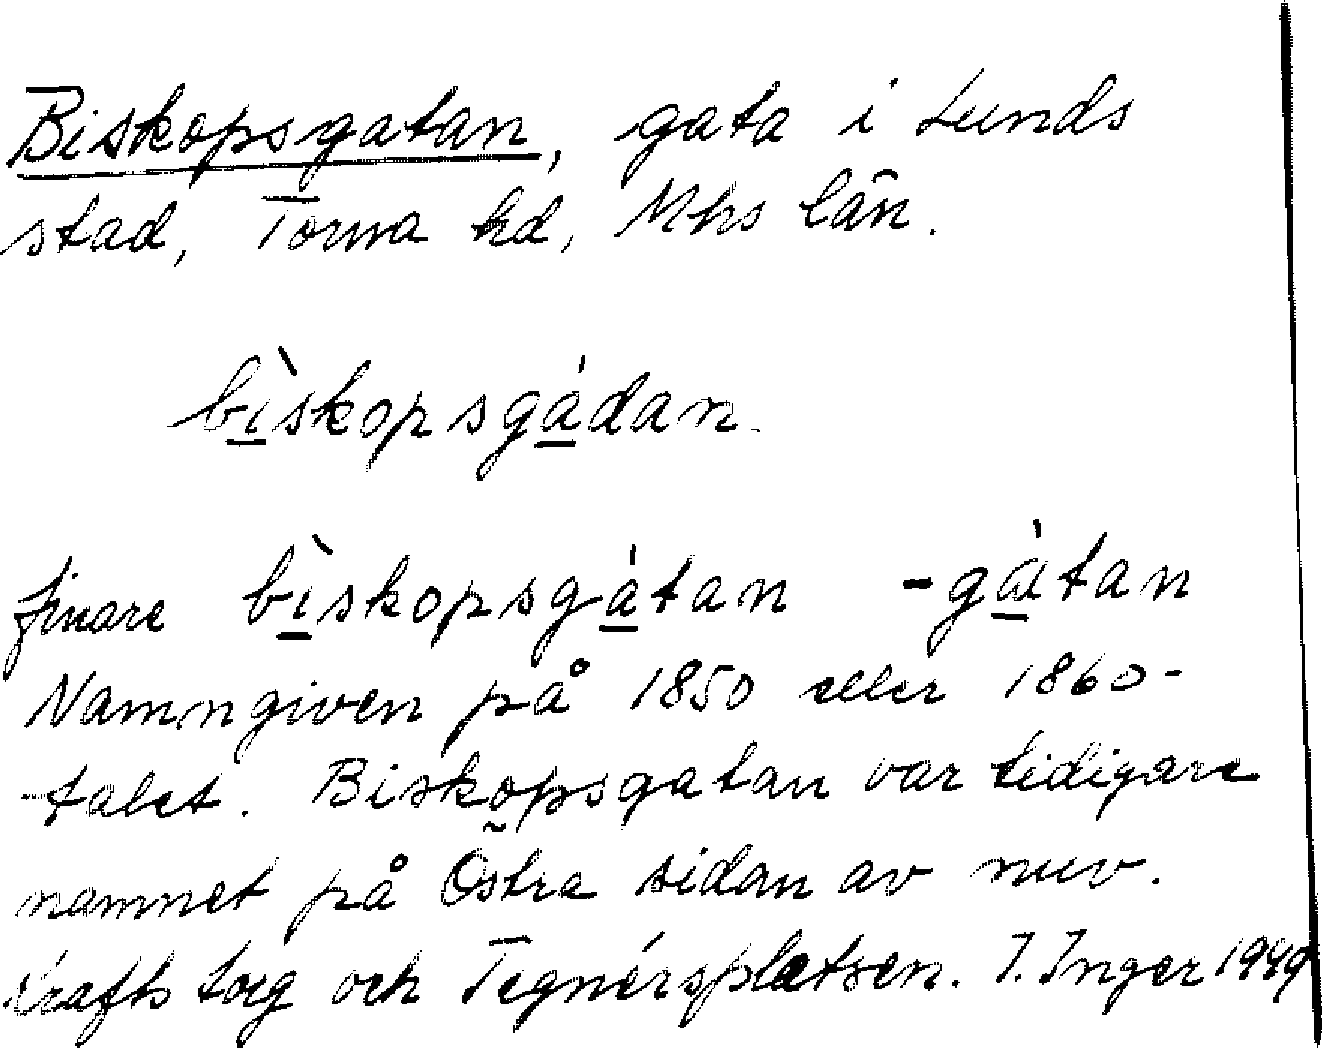 Biskopsgatan, gata i Lunds
stad, Torna hd, Mhs län.
bìskopsgádan.
finare bìskopsgátan -gátan
Namngiven på 1850 eller 1860-
-talet. Biskopsgatan var tidigare
namnet på Östra sidan av nuv.
Krafts torg och Tegnérsplatsen. I. Ingers 1949